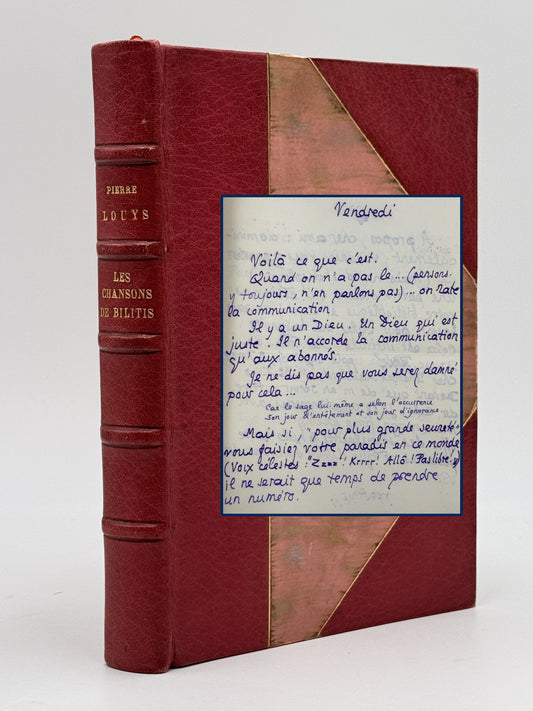 PIERRE
LOUYS
LES
CHANSONS
DE BILITIS
Vendredi
Voilà ce que c'est.
Quand on n'a pas le ... (pensons-
y toujours, n'en parlons pas) ... on rate
la communication
Il y a un Dieu. Un Dieu qui est
juste. Il n'accorde la communication
qu'aux abonnés.
Je ne dis pas que vous serez damné
pour cela ...
Car le sage lui-même a selon l'occurrence
Son jour d'entêtement et son jour d'ignorance
Mais si, "pour plus grande seureté"
vous faisiez votre paradis en ce monde
(Voix célestes : "Zzzz ! Krrrr ! Allô ! Pas libre !")
il ne serait que temps de prendre
un numéro.